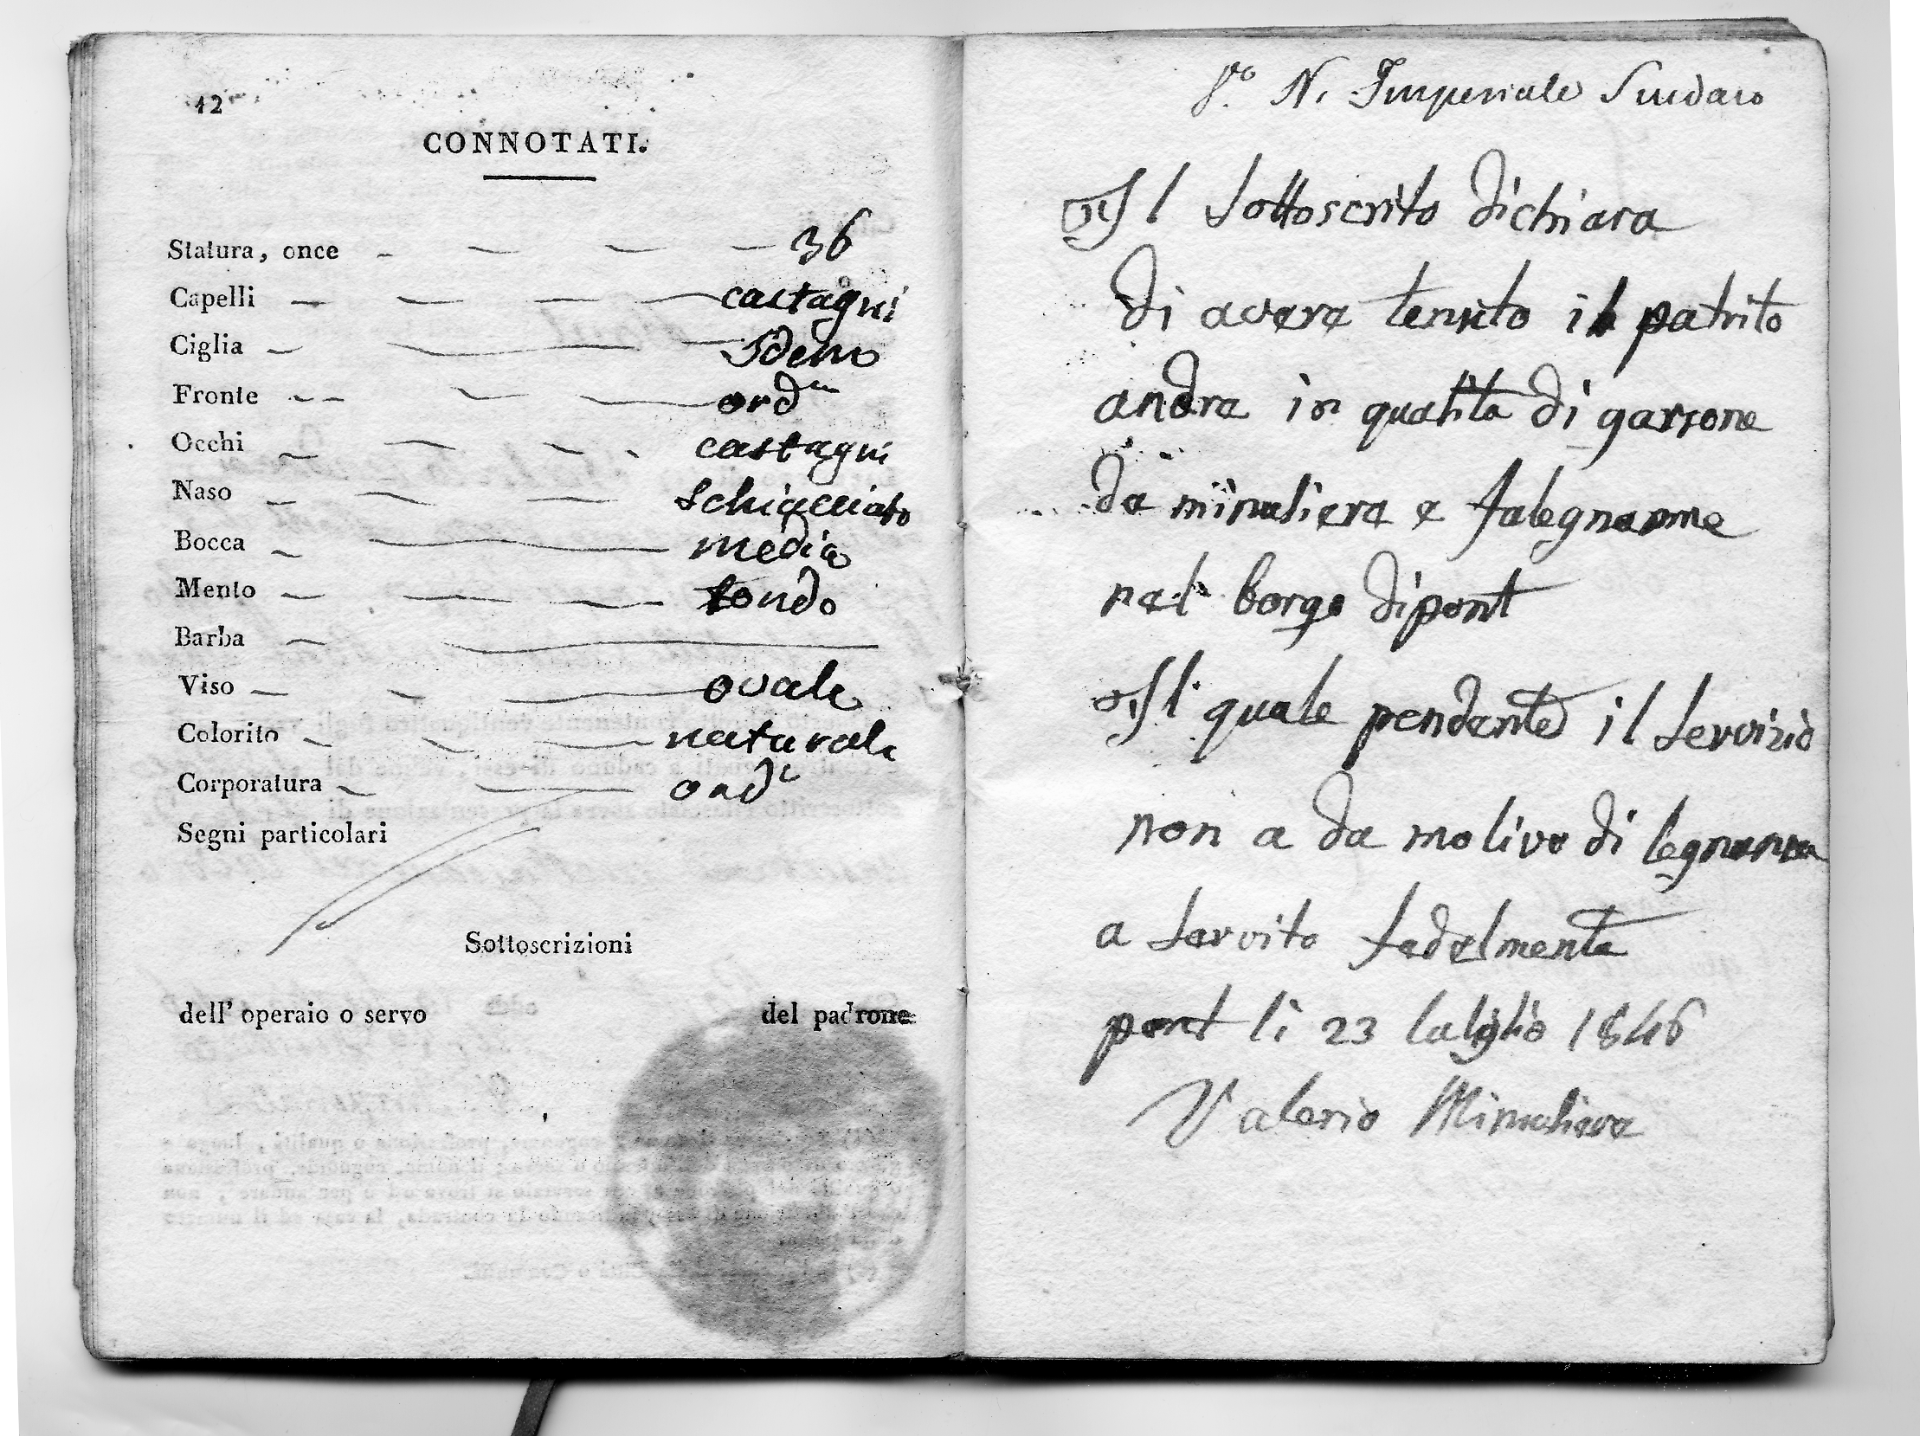 12
CONNOTATI.
Statura, once 36
Capelli castagni
Ciglia Idem
Fronte ord
Occhi castagni
Naso schiacciato
Bocca media
Mento tondo
Barba
Viso ovale
Colorito naturale
Corporatura ord
Segni particolari
Sottoscrizioni
dell' operaio o servo del padrone
N. Imperiale Sindaco
Il sottoscrito dichiara
di avere tenuto il patrito
andra in qualita di garsone
da minusiera e falegname
nel borgo dipont
Il quale pendante il servizio
non a da motivo di legnansa
a servito fedelmente
pont li 23 lalglio 1846
Valerio